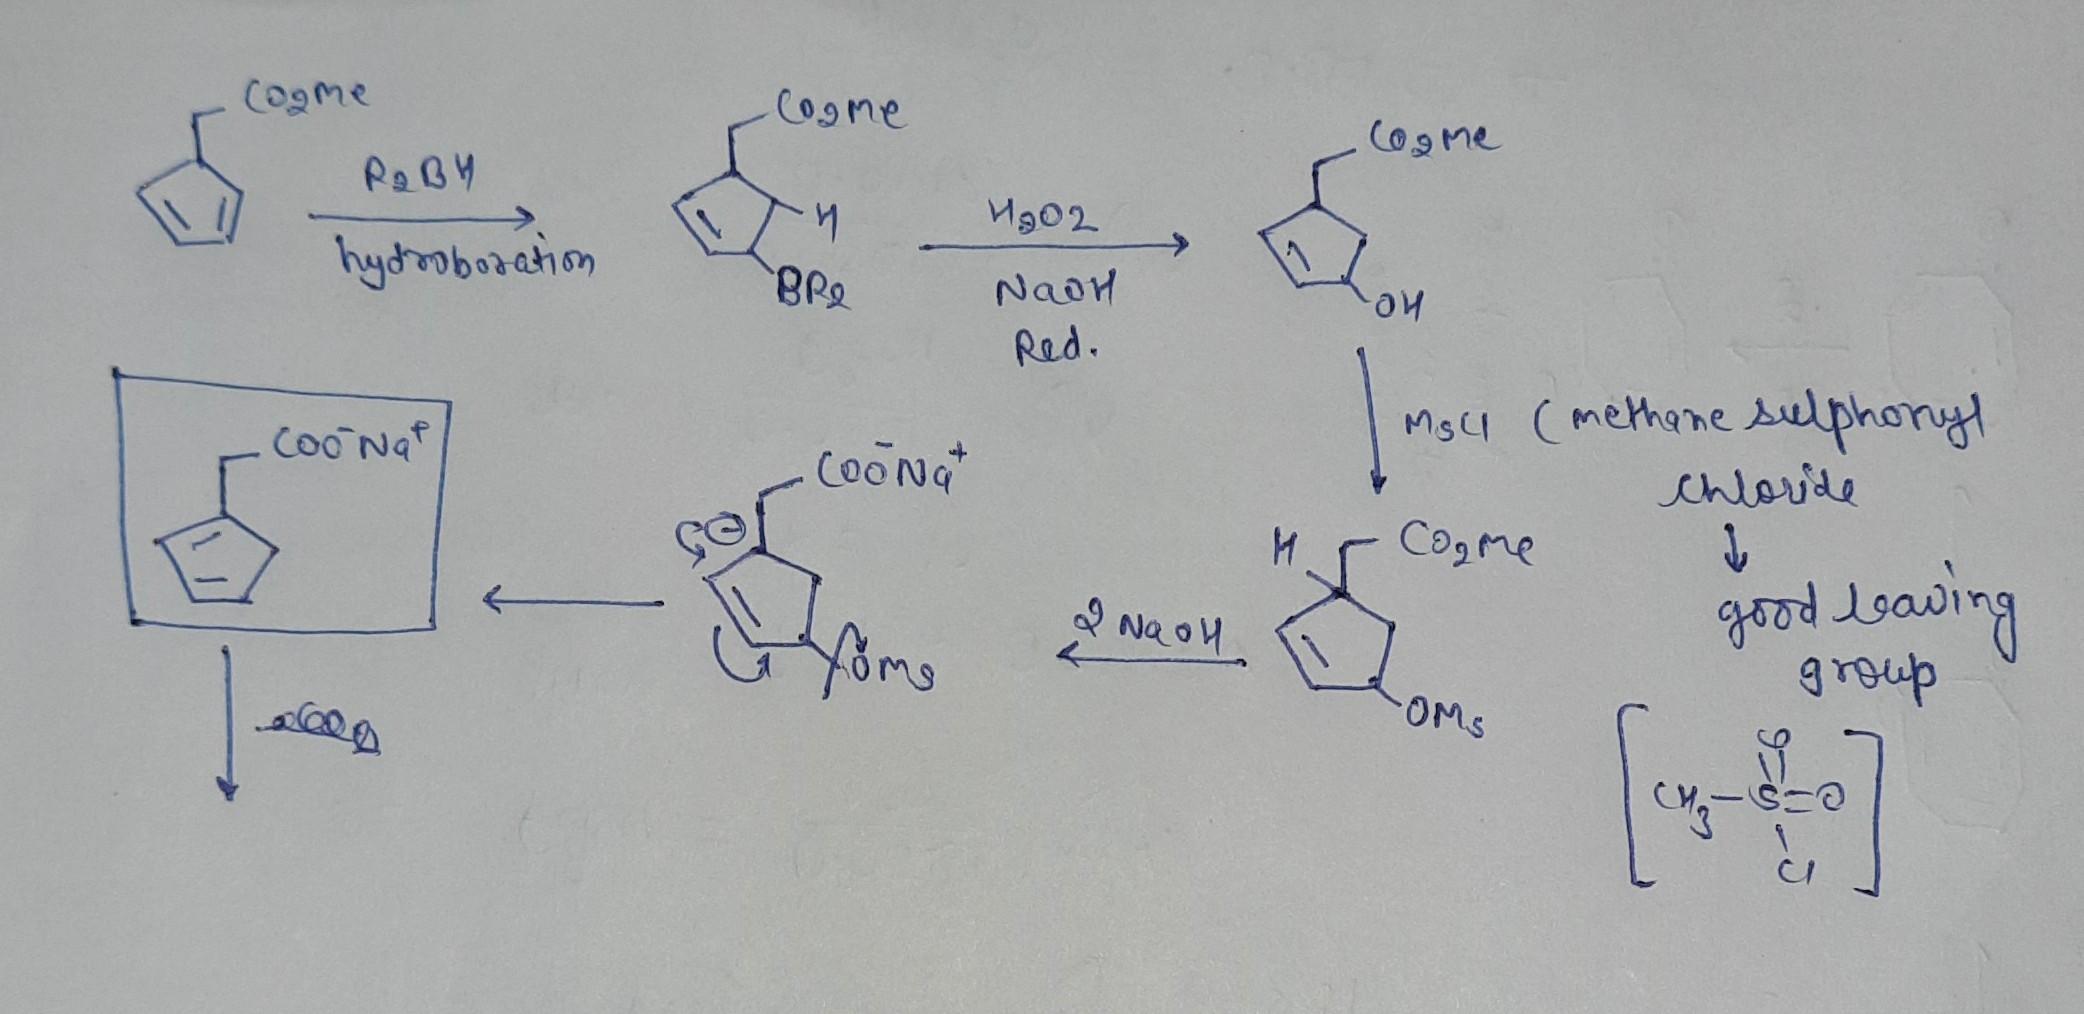 CO2Me
R2BH
hydroboration
CO2Me
H
BR2
H2O2
NaOH
Red.
CO2Me
OH
MsCl (methane sulphonyl
chloride
↓
good leaving
group
[CH3-S=O
O
Cl]
H
CO2Me
OMs
2 NaOH
COO⁻Na⁺
⊖
OMs
COO⁻Na⁺